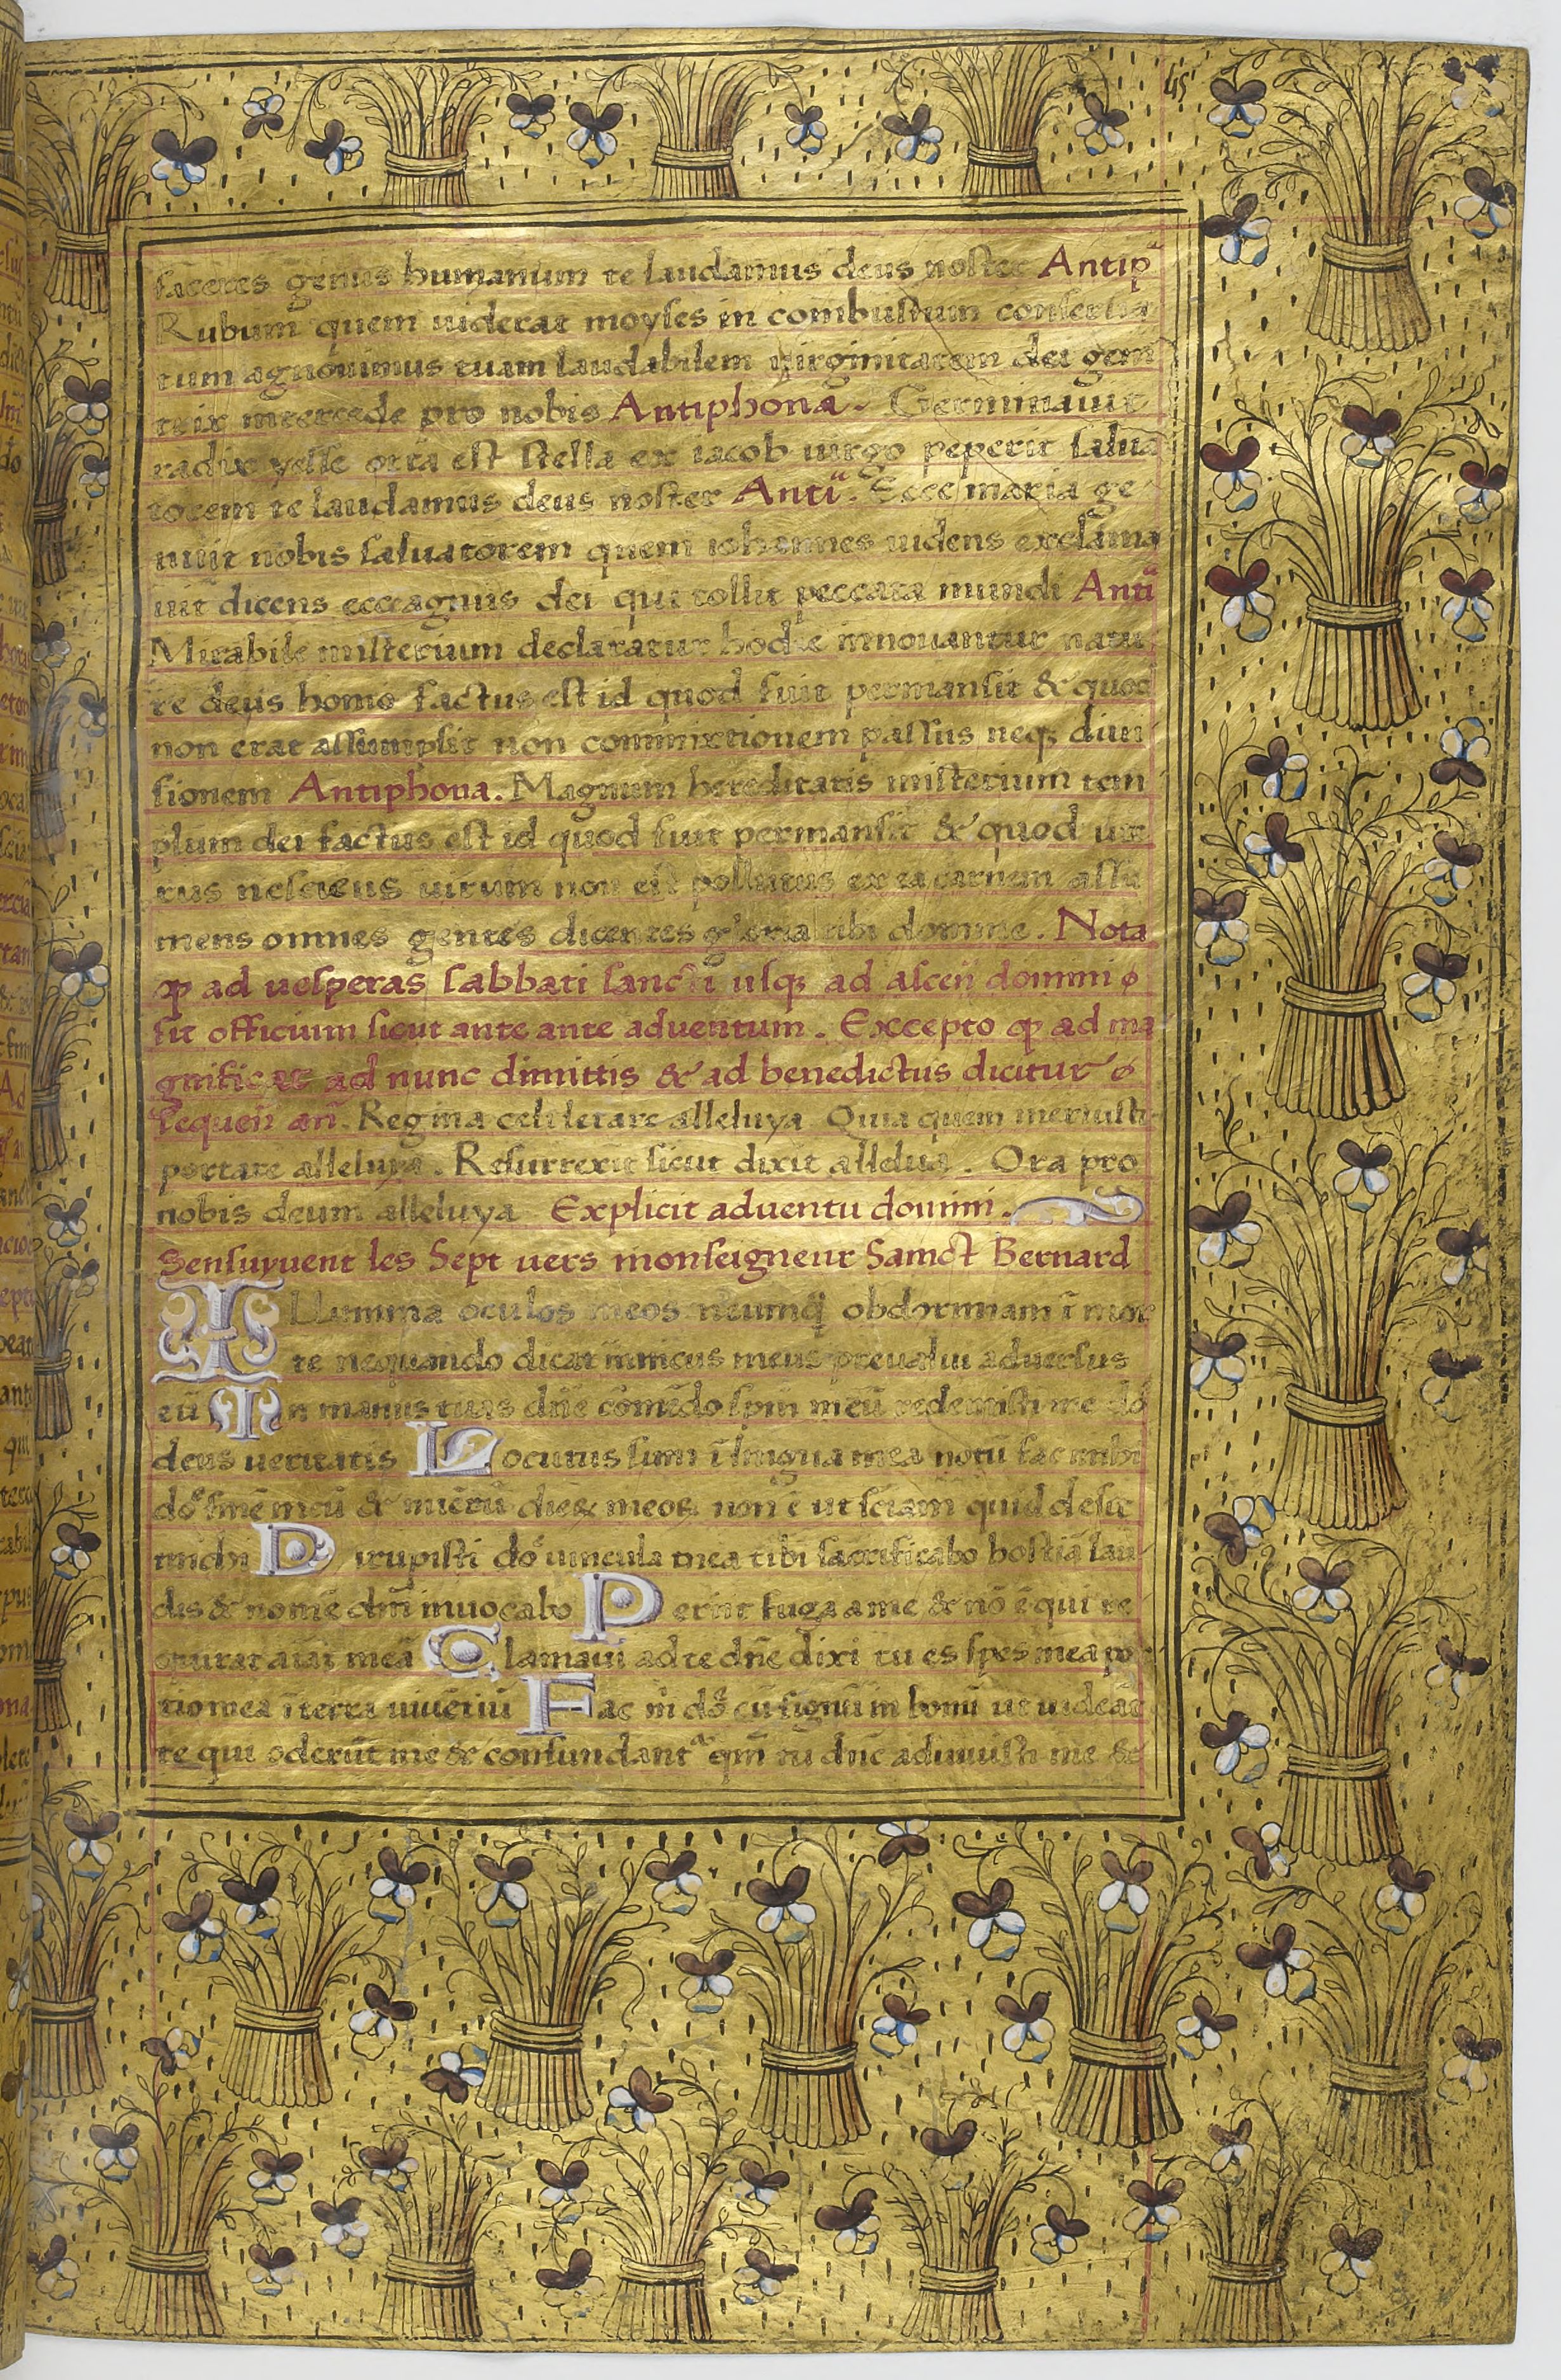 45
faceres genus humanum te laudamus deus noster Antiꝑᵃ
Rubum quem uiderat moyses in combustum conserua
tum agnouimus tuam laudabilem uirginitatem dei geni
trix intercede pro nobis Antiphona. Germinauit
radix yesse orta est stella ex iacob uirgo peperit salua
torem te laudamus deus noster Antiᵃ. Ecce maria ge
nuit nobis saluatorem quem iohannes uidens exclama
uit dicens ecce agnus dei qui tollit peccata mundi Antiᵃ
Mirabile misterium declaratur hodie innouantur natu
re deus homo factus est id quod fuit permansit & quod
non erat assumpsit non commixtionem passus neq; diui
sionem Antiphona. Magnum hereditatis misterium tem
plum dei factus est id quod fuit permansit & quod ute
rus nesciens uirum non est pollutus ex ea carnem assu
mens omnes gentes dicentes gloria tibi domine. Nota
ꝙ ad uesperas sabbati sancti usq; ad ascen̄ domini
fit officium sicut ante ante aduentum. Excepto ꝙ ad ma
gnificat ad nunc dimittis & ad benedictus dicitur
sequen̄ an̄. Regina celi letare alleluya Quia quem meruisti
portare alleluya. Resurrexit sicut dixit alleluya. Ora pro
nobis deum alleluya Explicit aduentu domini.
Sensuyuent les Sept uers monseigneur Sainct Bernard
ILlumina oculos meos ne umq̄ obdormiam ī mor
te nequando dicat inimicus meus preualui aduersus
eū In manus tuas dn̄e cōmēdo spm̄ meū redemisti me do
deus ueritatis Locutus sum ī lingua mea notū fac michi
doᵉ finē meū & numerū dierꝝ meoꝝ non ē ut sciam quid desit
michi Dirupisti doᵉ uincula mea tibi sacrificabo hostiā lau
dis & nomē dm̄i inuocabo Periit fuga a me & nō ē qui re
quirat aīaī meā Clamaui ad te dn̄e dixi tu es spes mea por
tio mea ī terra uiuētiū Fac m̄ dō cū signū in bonū ut uideāt
te qui oderūt me & confundantʳ qm̄ tu dn̄e adiuuisti me &